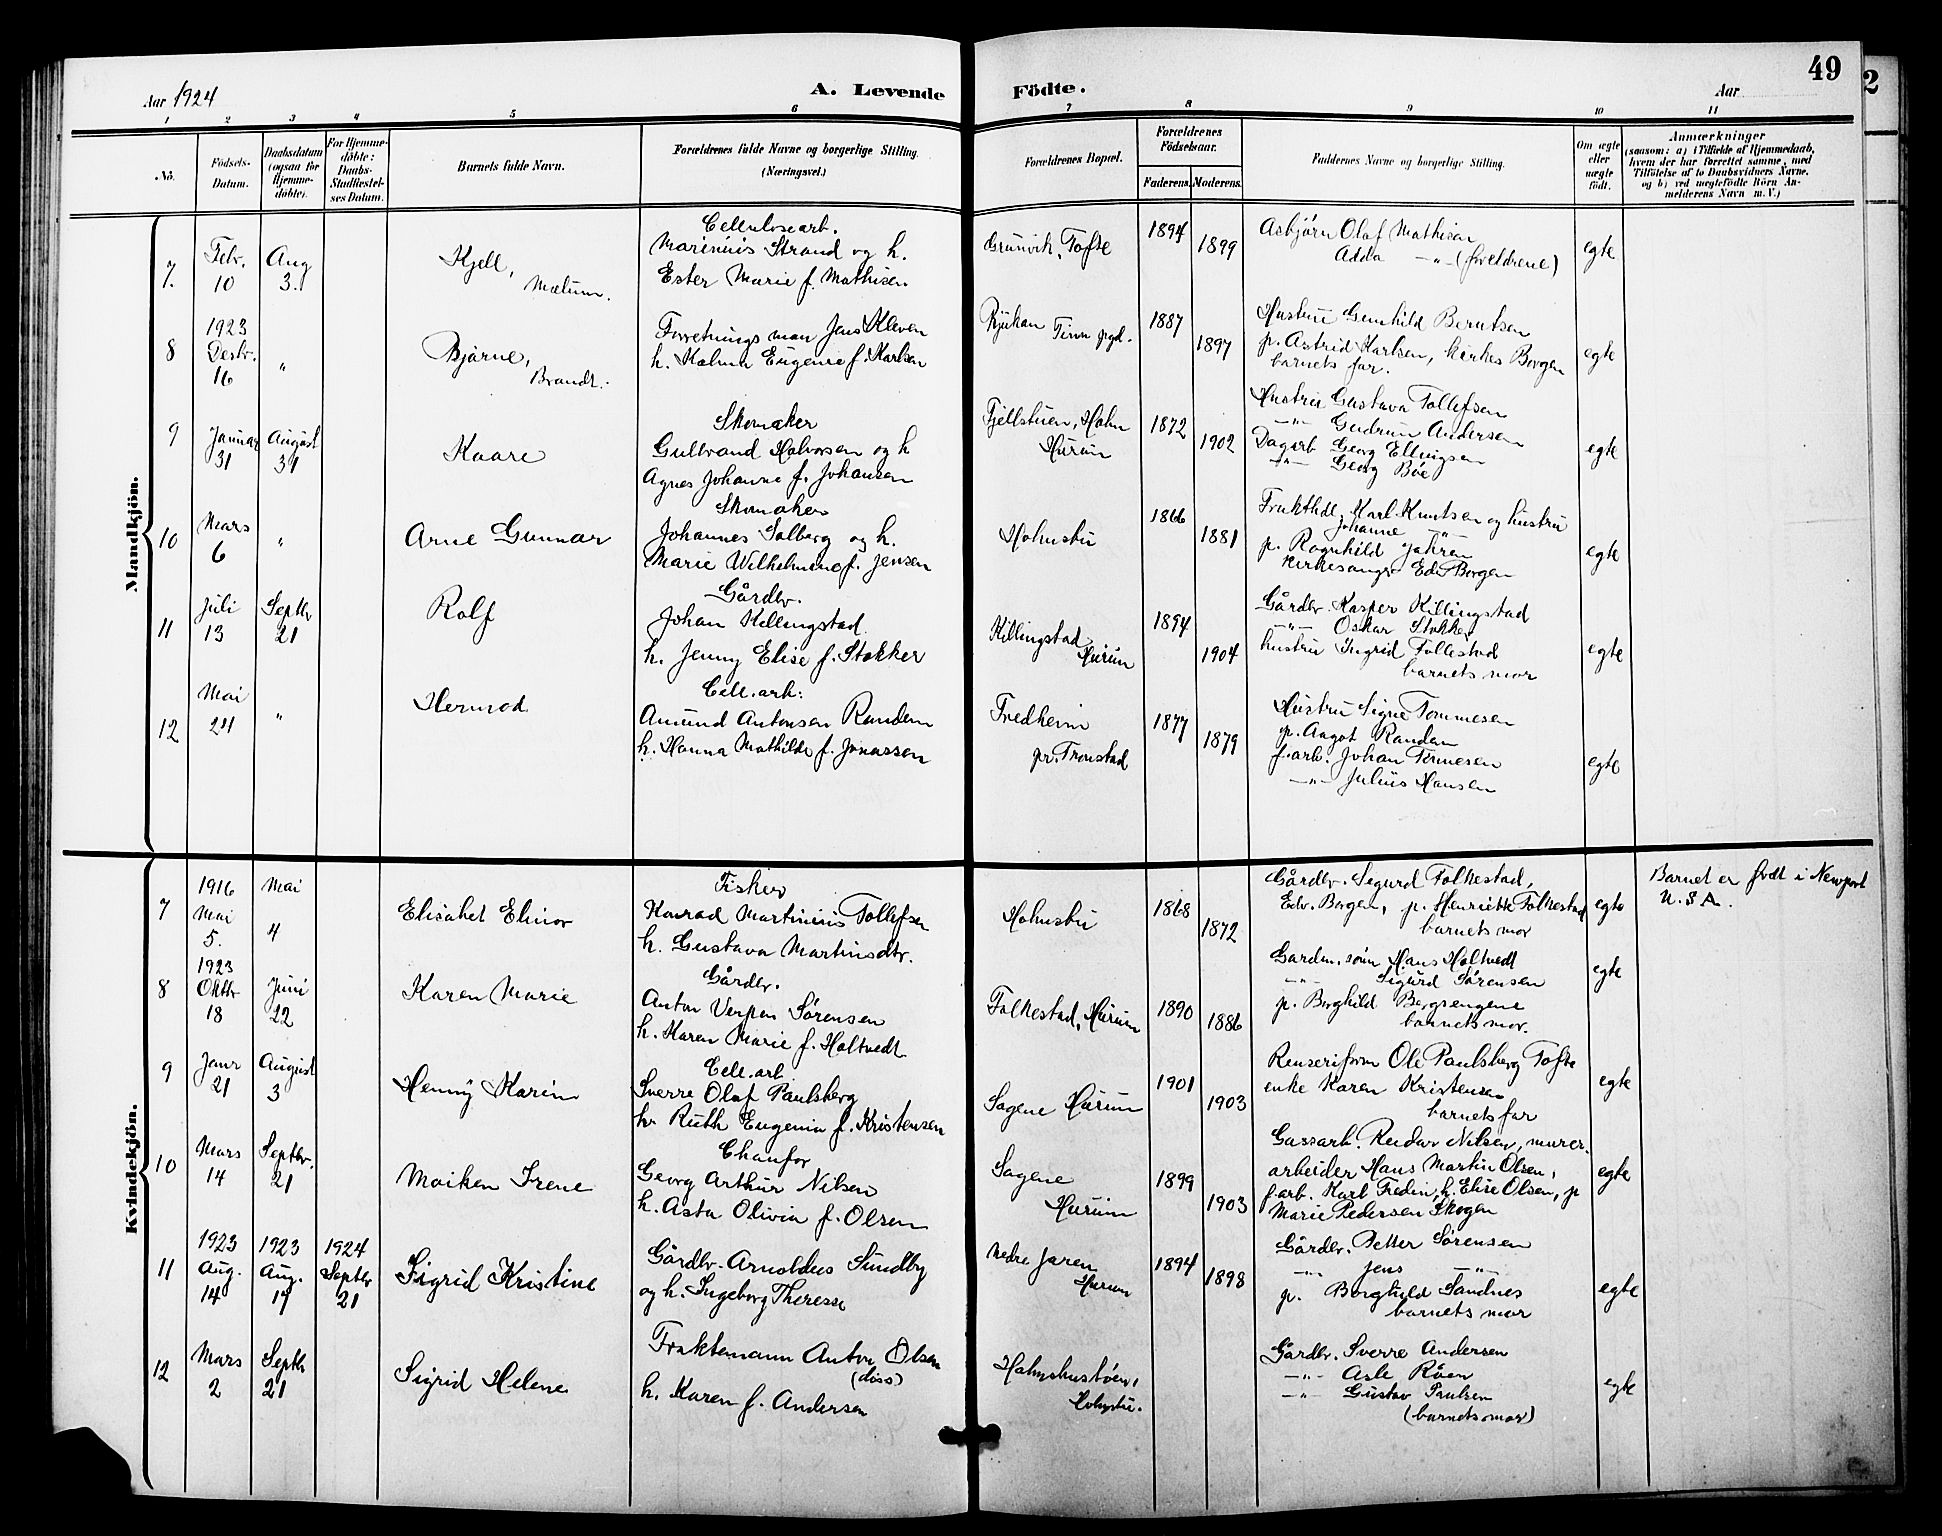 49
2
Aar 1924
A. Levende
Födte.
Aar
1 2 3 4 5 6 7 8 9 10 11
No.
Födsels-
Datum.
Daabsdatum
(ogsaa for
Hjemme-
döbte).
For Hjemme-
döbte:
Daabs-
Stadfæstel-
ses Datum.
Barnets fulde Navn.
Forældrenes fulde Navne og borgerlige Stilling.
(Næringsvei.)
Forældrenes Bopæl.
Forældrenes
Födselsaar.
Faderens.
Moderens.
Faddernes Navne og borgerlige Stilling.
Om ægte
eller
uægte
født.
Anmærkninger
(saasom: a) i Tilfælde af Hjemmedaab,
hvem der har forrettet samme, med
Tilföielse af to Daabsvidners Navne,
og b) ved uægtefödte Börn An-
melderens Navn m. V.)
Mandkjön.
7.
Febr.
10
Aug
3.
Kjell,
Mælum.
Cellulosearb.
Marinius Strand og h.
Ester Marie f. Mathisen
Grunvik, Tofte
1894
1899
Asbjörn Olaf Mathisen
Adda —"— (foreldrene)
egte
8
1923
Desbr.
16
"
Bjarne,
Brandt.
Forretnings man Jens Kleven
h. Halma Eugenie f. Karlsen
Rjukan Tinn pgd.
1887
1897
Hustru Gunhild Berntsen
p. Astrid Karlsen, kirkes Borgen
barnets far.
egte
9
Januar
31
August
31
Kaare
Skomaker
Gulbrand Halvorsen og h
Agnes Johanne f. Johansen
Fjellstuen, Holm
Hurum
1872
1902
Hustru Gustava Tollefsen
—"— Gudrun Andersen
Dagarb Georg Ellingsen
—"— Georg Böe
egte
10
Mars
6
"
Arne Gunnar
Skomaker
Johannes Solberg og h.
Marie Wilhelmine f. Jensen
Holmsbu
1866
1881
Frukthdl. Karl Knutsen og hustru
Johanne —"—
p. Ragnhild Jahren
kirkesanger Edv Borgen
egte
11
Juli
13
Septbr
21
Rolf
Gårdbr.
Johan Killingstad
h. Jenny Elise f. Stokker
Killingstad
Hurum
1894
1904
Gårdbr. Kasper Killingstad
—"— Oskar Stokker
hustru Ingrid Follestad
barnets mor
egte
12
Mai
24
"
Hermod
Cell. arb:
Amund Antonsen Randem
h. Hanna Mathilde f. Jonassen
Fredheim
pr. Tronstad
1877
1879
Hustru Signe Tommesen
p. Aagot Randem
f.arb. Johan Tommesen
—"— Julius Hansen
egte
Kvindekjön.
7
1916
Mai
5.
Mai
4
Elisabet Elinor
Fisker
Konrad Martinius Tollefsen
h. Gustava Martinsdtr.
Holmsbu
1868
1872
Gårdbr. Sigurd Folkestad,
Edv. Borgen, p. Henriette Folkestad
barnets mor
egte
Barnet er født i Newport
U.S.A.
8
1923
Oktbr
18
Juni
22
Karen Marie
Gårdbr.
Anton Verpen Sörensen
h. Karen Marie f. Holtvedt
Folkestad, Hurum
1890
1886
Gardm. sönn Hans Holtvedt
—"— Sigurd Sörensen
p. Borghild Bergsengene
barnets mor.
egte
9
Janr
21
August
3
Henny Karin
Cell. arb
Sverre Olaf Paulsberg
h. Ruth Eugenia f. Kristensen
Sagene Hurum
1901
1903
Renseriform Ole Paulsberg Tofte
enke Karen Kristensen
barnets far
egte
10
Mars
14
Septbr.
21
Moiken Irene
Chaufør
Georg Arthur Nilsen
h. Asta Olivia f. Olsen
Sagene
Hurum
1899
1903
Gassarb. Reidar Nilsen, murer.
arbeider Hans Martin Olsen,
f.arb. Karl Fredin, h. Elise Olsen, p
Marie Pedersen Skogen
egte
11
1923
Aug.
14
1923
Aug.
17
1924
Septbr
21
Sigrid Kristine
Gårdbr. Arnoldus Sundby
og h. Ingeborg Therese
Nedre Jaren
Hurum
1894
1898
Gårdbr. Petter Sörensen
—"— Jens —"—
p. Borghild Sandnes
barnets mor
egte
12
Mars
2
Septbr
21
Sigrid Helene
Fraktemann Anton Olsen
(diss)
h. Karen f. Andersen
Holmsbu.
Gårdbr. Sverre Andersen
—"— Asle Röen
—"— Gustav Paulsen
(barnets mor)
egte